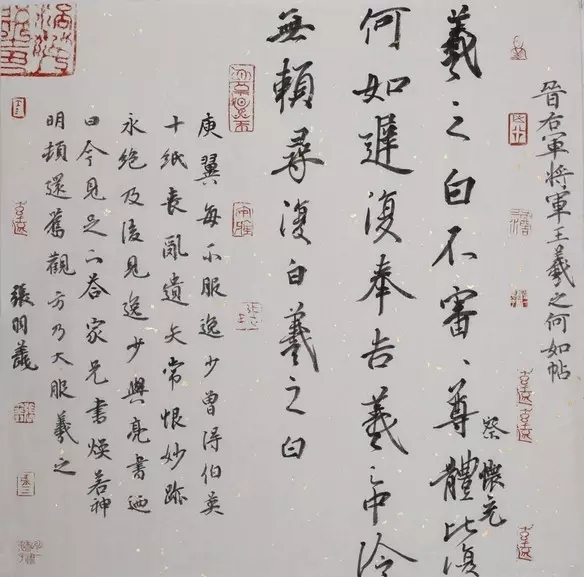 晉右軍将軍王羲之何如帖
羲之白不審、尊體比復
察
懷充
何如遲復奉告羲之中冷
無賴尋復白羲之白
庾翼每不服逸少曾得伯英
十紙喪亂遺失常恨妙跡
永絕及後見逸少與亮書迺
曰今見足下荅家兄書煥若神
明頓還舊觀方乃大服羲之
張明